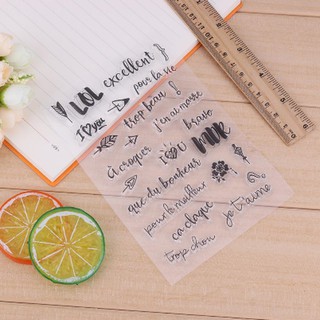 LOL excellent
I you pour la vie
trop beau j'en ai marre
à croquer I U bravo
MDR
que du bonheur
pour le meilleur
ça claque je t'aime
trop chou